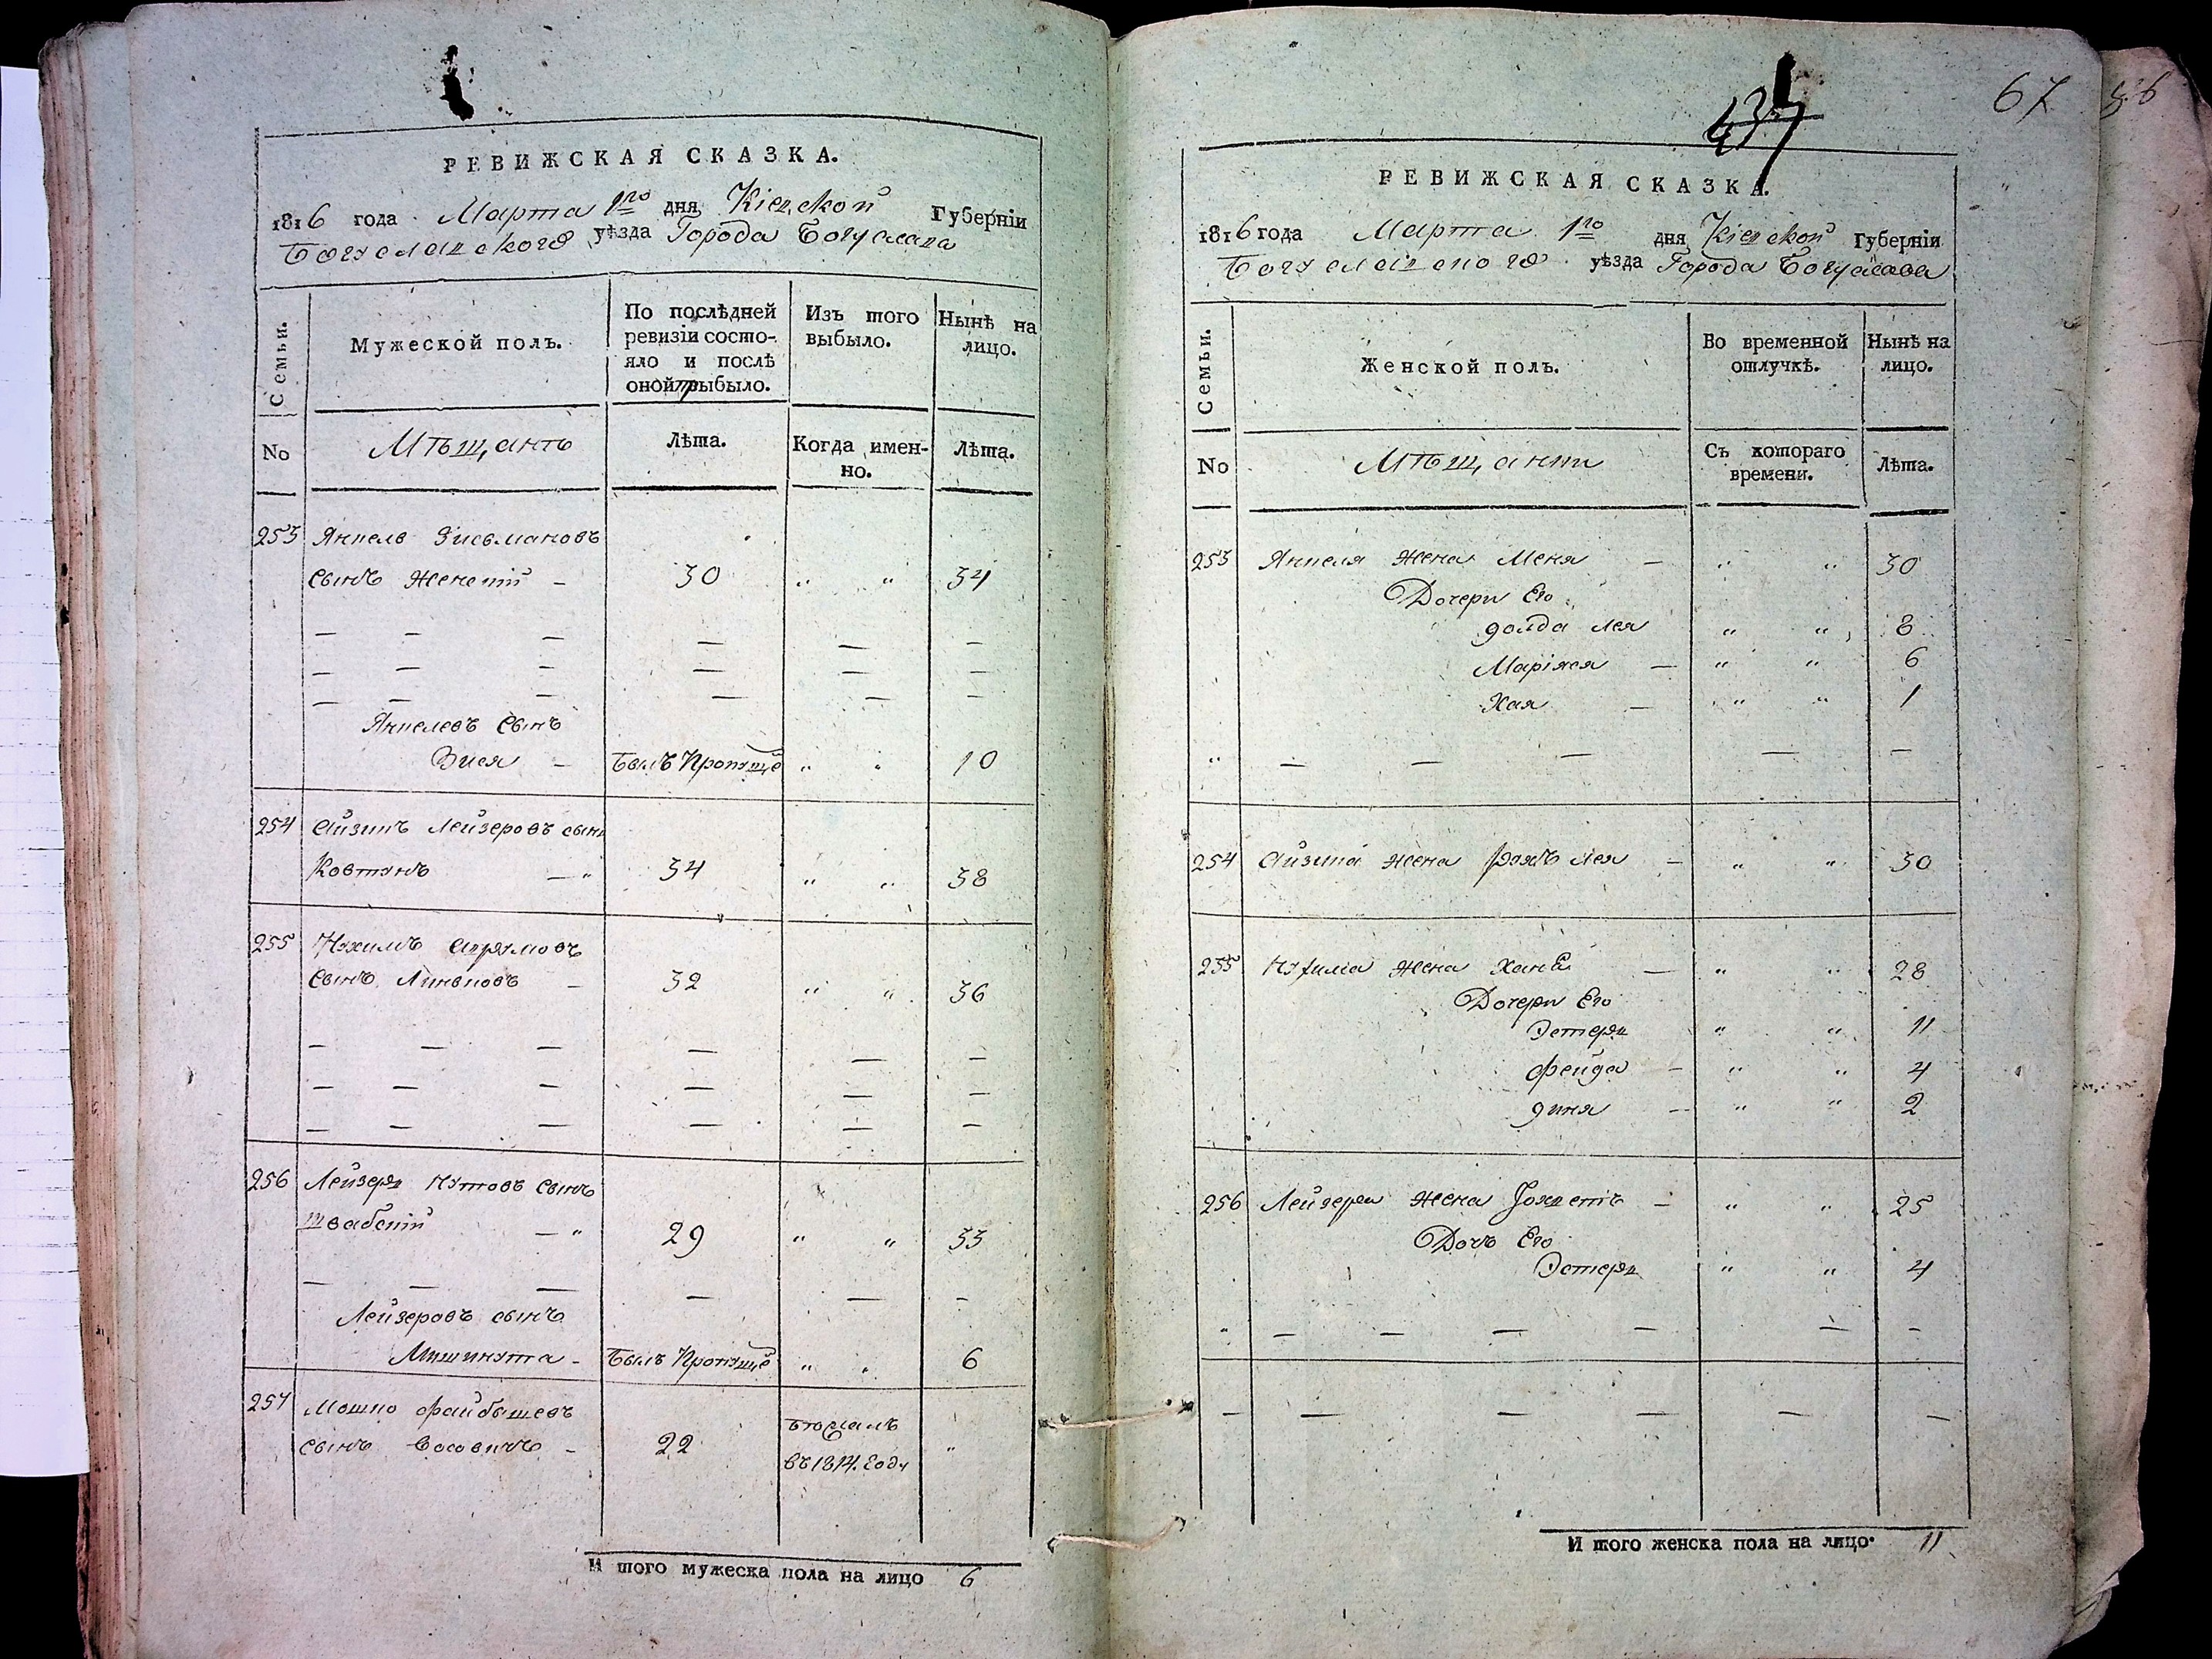 РЕВИЖСКАЯ СКАЗКА.
1816 года Марта 1го дня Кіевской Губерніи
Богуславского уѣзда Города Богуслава
Семьи.
Мужеской полъ.
По послѣдней ревизіи состояло и послѣ оной прибыло.
Изъ того выбыло.
Нынѣ на лицо.
No
Мѣщанъ
Лѣта.
Когда именно.
Лѣта.
253 Янкель Зисьмановъ
сынъ 30 " " 34
— — — — — —
— — — — — —
— — — — — —
Янкелевъ сынъ
Зися — былъ Пропуще " " 10
254 Айзикъ Лейзеровъ сынъ
Ковтунъ — " 34 " " 38
255 Нухимъ Аврумовъ
сынъ 32 " " 36
— — — — — —
— — — — — —
— — — — — —
256 Лейзеръ Нутовъ сынъ
Швабскій — " 29 " " 33
— — — — — —
Лейзеровъ сынъ
былъ Пропуще " " 6
257 Мошко Файбышевъ
сынъ 22 бежалъ "
въ 1814. году
И того мужеска пола на лицо 6
437
67
РЕВИЖСКАЯ СКАЗКА.
1816 года Марта 1го дня Кіевской Губерніи
Богуславского уѣзда Города Богуслава
Семьи.
Женской полъ.
Во временной отлучкѣ.
Нынѣ на лицо.
No
Мѣщанки
Съ котораго времени.
Лѣта.
253 Янкеля жена Меня — " " 30
Дочери Его
Голда Лея " " 8
Маріяся — " " 6
Хая — " " 1
" — — — — —
254 Айзика жена Рухъ Лея — " " 30
255 Нухима жена Хана — " " 28
Дочери Его
Эстеръ " " 11
Фейга — " " 4
Гиня — " " 2
256 Лейзера жена — " " 25
Дочь Его
Эстеръ " " 4
" — — — — — —
— — — — — — —
И того женска пола на лицо. 11